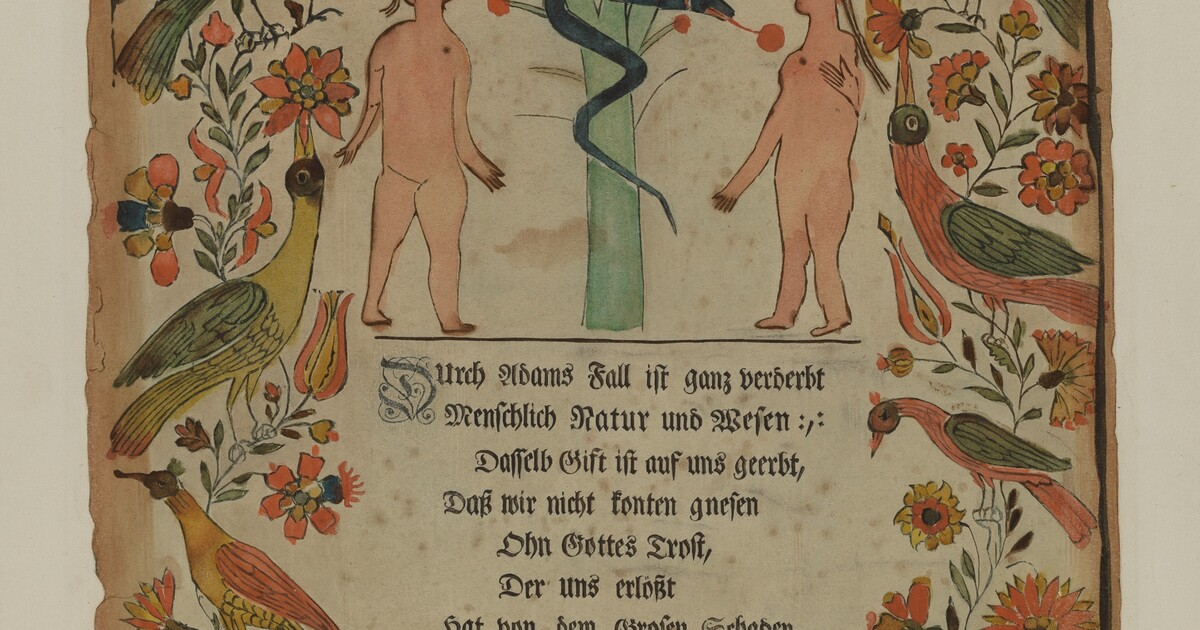 Durch Adams Fall ist ganz verderbt
Menschlich Natur und Wesen :,:
Dasselb Gift ist auf uns geerbt,
Daß wir nicht konten gnesen
Ohn Gottes Trost,
Der uns erlößt
Hat von dem Grosen Schaden